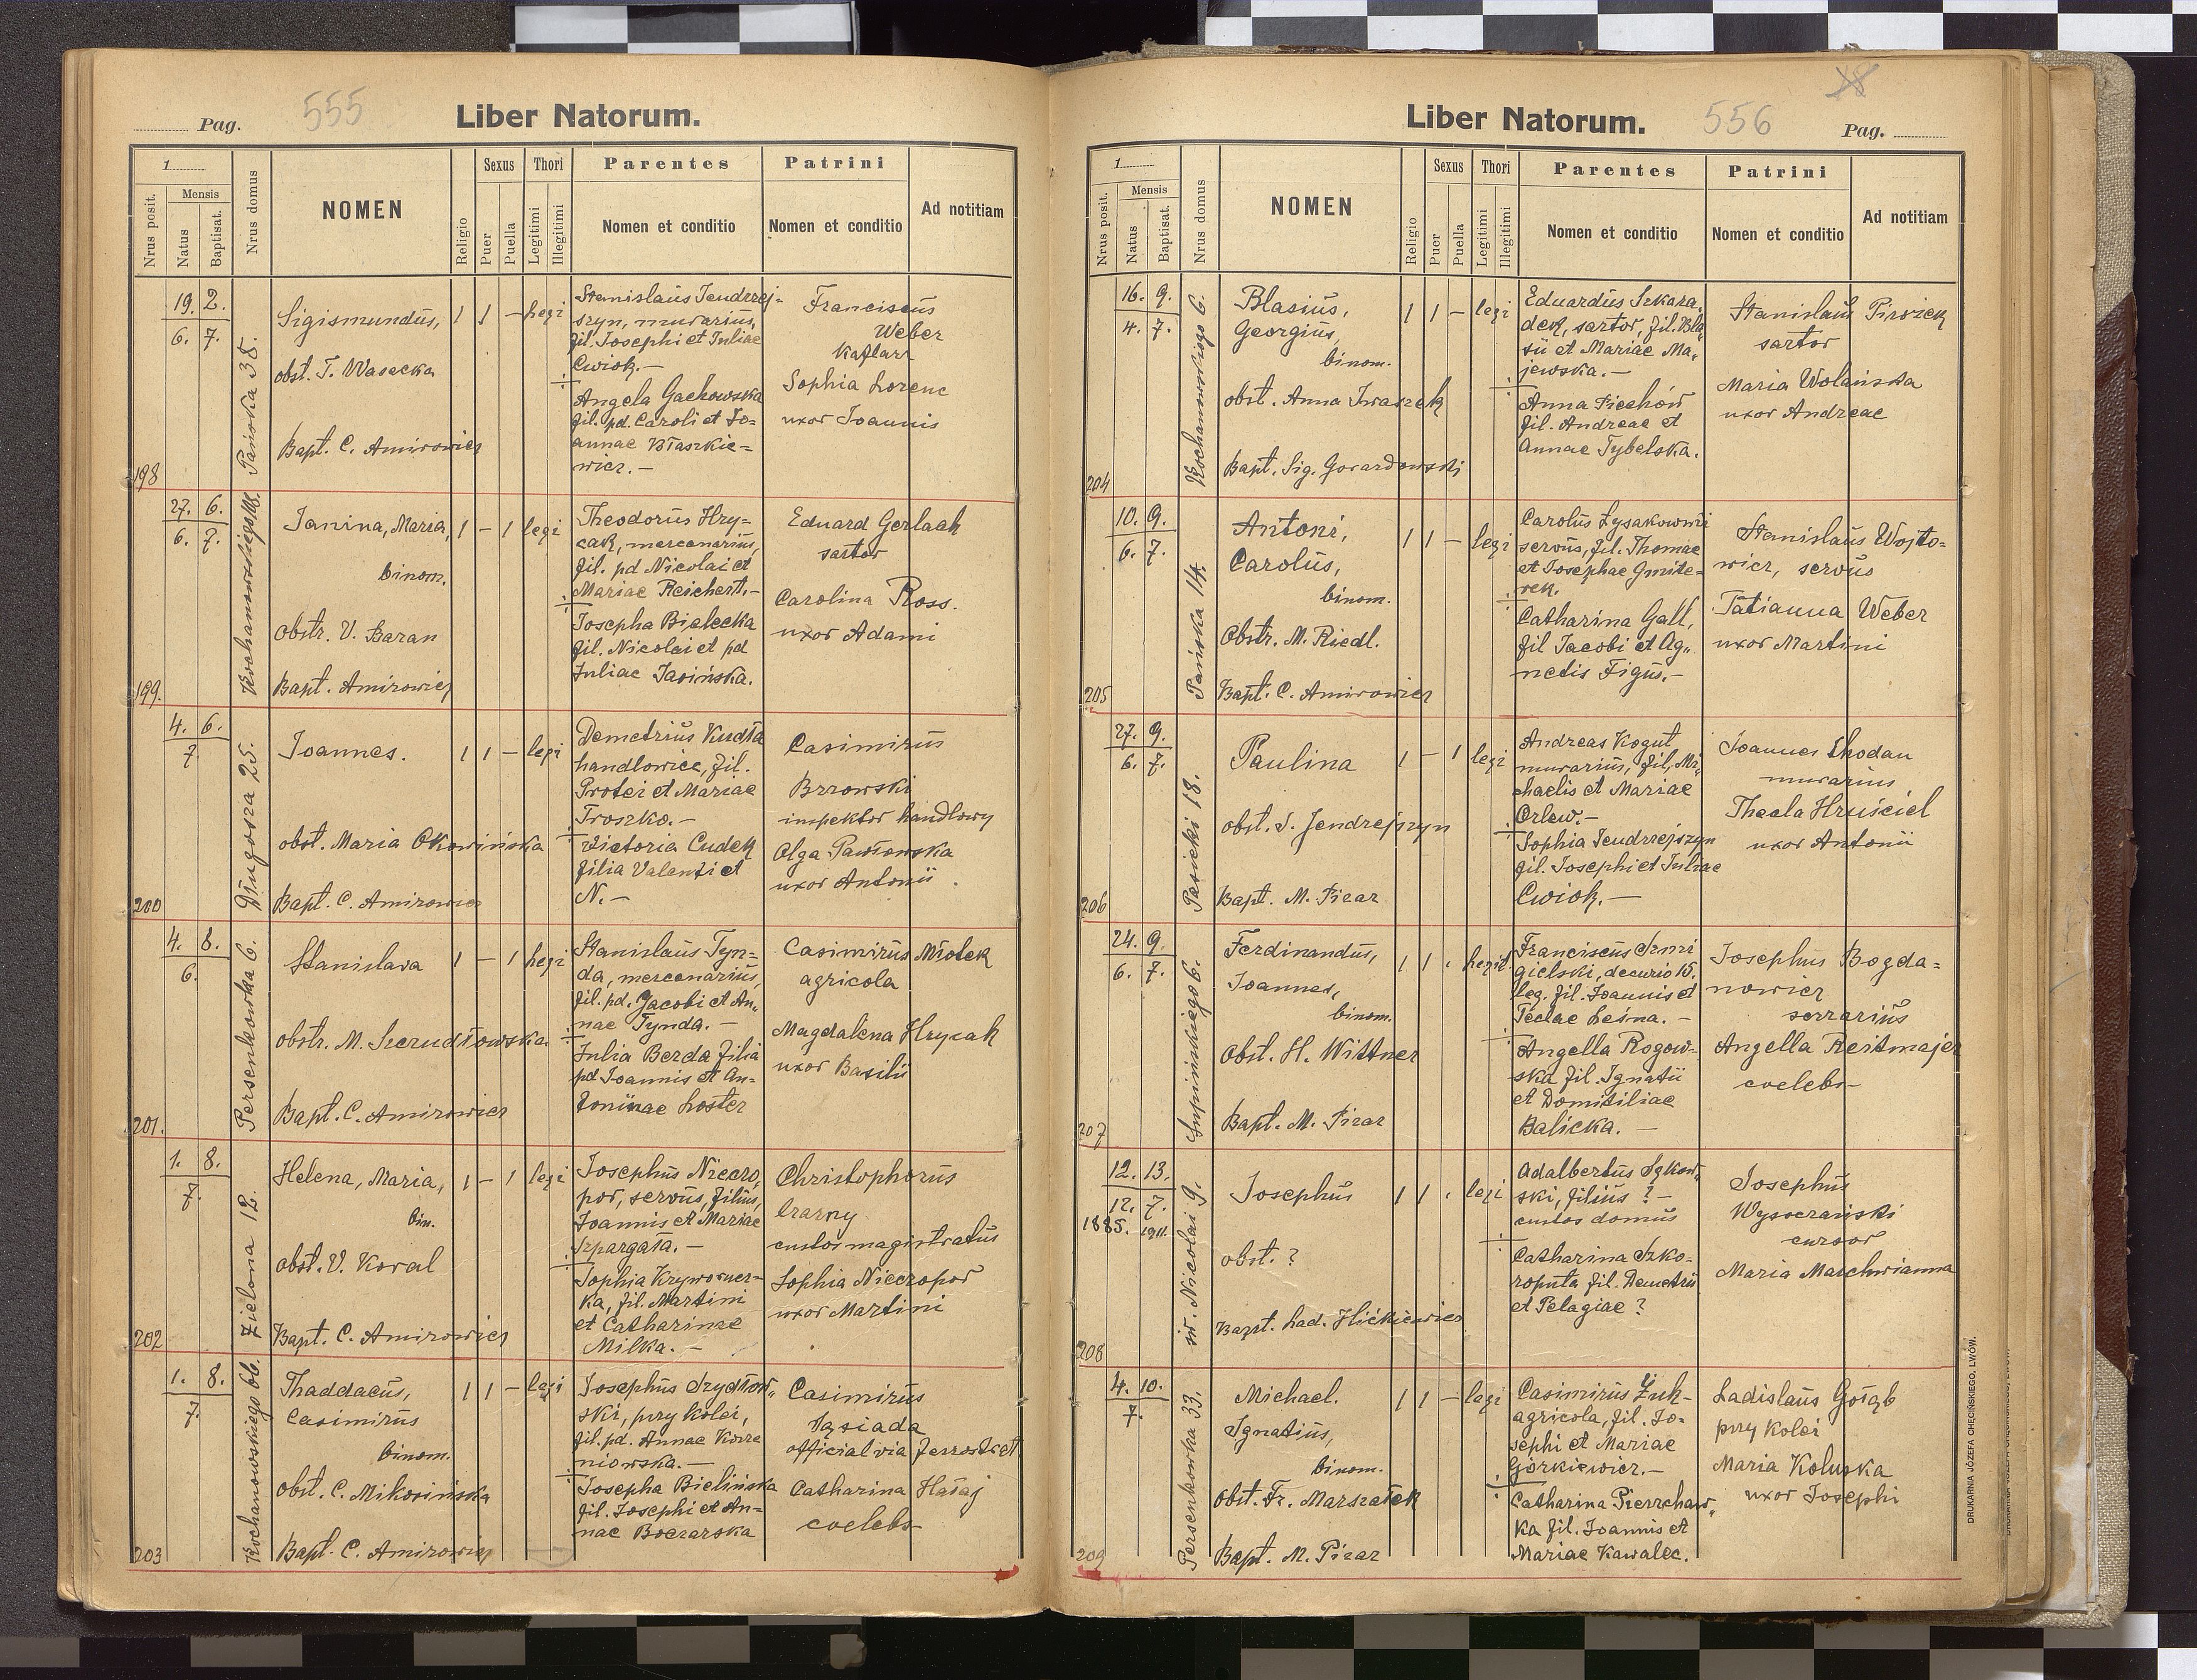 Pag.
555
Liber Natorum.
1
Nrus posit.
Mensis
Natus
Baptisat.
Nrus domus
NOMEN
Religio
Sexus
Puer
Puella
Thori
Legitimi
Illegitimi
Parentes
Nomen et conditio
Patrini
Nomen et conditio
Ad notitiam
198
19. 2.
6. 7.
Pańska 38.
Sigismundus,
obst. T. Wasecka
Bapt. C. Amirowicz
1 1 - legi
Stanislaus Jendrzej-
szyn, murarius,
fil. Josephi et Juliae
Cwiok.-
Angela Gachowska
fil. pd. Caroli et Jo=
annae Błaszkie=
wicz.-
Franciscus
Weber
kaflarz
Sophia Lorenc
uxor Joannis
199.
27. 6.
6. 7.
Kochanowskiego
Janina, Maria,
binom.
obstr. V. Baran
Bapt. Amirowicz
1 - 1 legi
Theodorus Hry=
cak, mercenarius,
fil. pd Nicolai et
Mariae Reichert.-
Josepha Bielecka
fil. Nicolai et pd
Juliae Jasińska.
Eduard Gerlach
sartor
Carolina Ross.
uxor Adami
200
4. 6.
7.
Długosza 25.
Joannes.
obst. Maria Okowińska
Bapt. C. Amirowicz
1 1 - legi
Demetrius Kudła
handlowiec, fil.
Protei et Mariae
Troszko.-
Victoria Cudek
filia Valenti et
N.-
Casimirus
Brzowski
inspektor handlowy
Olga Pawłowska
uxor Antonii.
201.
4. 8.
6.
Persenkowka 6.
Stanislava
obstr. M. Szczudłowska
Bapt. C. Amirowicz
1 - 1 legi
Stanislaus Tyn=
da, mercenarius,
fil. pd. Jacobi et An„
nae Tynda.-
Julia Berda filia
pd Joannis et An-
toninae Loster
Casimirus Młotek
agricola
Magdalena Hrycak
uxor Basilii
202
1. 8.
7.
Zielona 12.
Helena, Maria,
bin.
obst. V. Koval
Bapt. C. Amirowicz
1 - 1 legi
Josephus Nieczo„
por, servus, filius,
Joannis et Mariae
Szpargała.-
Sophia Kryworucz=
ka, fil. Martini
et Catharinae
Milka.-
Christophorus
Czarny
custos magistratus
Sophia Nieczopor
uxor Martini
203
1. 8.
7.
Kochanowskiego 66.
Thaddaeus,
Casimirus
binom.
obst. C. Mikosińska
Bapt. C. Amirowicz
1 1 - legi
Josephus Szydłow„
ski, przy kolei,
fil. pd. Annae Korze
niowska.-
Josepha Bielińska
fil. Josephi et An=
nae Boczarska
Casimirus
Tąsiada
official via
Catharina Hałaj
coelebs
Liber Natorum.
556
Pag.
1
Nrus posit.
Mensis
Natus
Baptisat.
Nrus domus
NOMEN
Religio
Sexus
Puer
Puella
Thori
Legitimi
Illegitimi
Parentes
Nomen et conditio
Patrini
Nomen et conditio
Ad notitiam
204
16. 9.
4. 7.
Kochanowskiego 6.
Blasius,
Georgius,
binom.
obst. Anna Iwaszek
Bapt. Sig. Gorardowski
1 1 - legi
Eduardus Szkara„
dek, sartor, fil. Bla„
sii et Mariae Ma„
jewska.-
Anna Piechów
fil. Andreae et
Annae Tybelska.
Stanislaus Pirożek
sartor
Maria Wolańska
uxor Andreae
205
10. 9.
6. 7.
Pańska 14.
Antoni,
Carolus,
binom.
Obstr. M. Riedl.
Bapt. C. Amirowicz
1 1 - legi
Carolus Łysakowski
servus, fil. Thomae
et Josephae Gmite=
rek.
Catharina Gall,
fil Jacobi et Ag„
netis Figus.-
Stanislaus Wojto=
wicz, servus
Tatianna Weber
uxor Martini
206
27. 9.
6. 7.
Pasieki 18.
Paulina
obst. S. Jendrejszyn
Bapt. M. Pizar
1 - 1 legi
Andreas Kogut
murarius, fil. Mi„
chaelis et Mariae
Orlew.-
Sophia Jendrzejszyn
fil. Josephi et Juliae
Cwiok.-
Joannes Shodan
murarius
Thecla Hruściel
uxor Antonii
207
24. 9.
6. 7.
Supińskiego 6.
Ferdinandus,
Joannes,
binom.
Obst. H. Wittner
Bapt. M. Pizar
1 1 . legit.
Franciscus Szmi
gielski, decurio 15.
leg. fil. Joannis et
Teclae Leśna.-
Angella Rogow-
ska fil. Ignatii
et Domitiliae
Balicka.-
Josephus Bogda=
nowicz
serrarius
Angella Reitmajer
coelebs
208
12. 13.
12. 7.
1885. 1911.
św. Nicolai 9.
Josephus
obst. ?
Bapt. Lad. Hickiewicz
1 1 . legi
Adalbertus Sękow„
ski, filius ?-
custos domus
Catharina Szko=
roputa fil. Demetrii
et Pelagiae ?
Josephus
Wysoczański
cursor
Maria Marchwianna
209
4. 10.
7.
Persenkowka 33.
Michael.
Ignatius,
binom.
Obst. Fr. Marszałek
Bapt. M. Pizar
1 1 - legi
Casimirus Żuk-
agricola, fil. Jo-
sephi et Mariae
Górkiewicz.-
Catharina Pierzchaw„
ka fil. Joannis et
Mariae Kawalec.
Ladislaus Gołąb
przy kolei
Maria Koluska
uxor Josephi
DRUKARNIA JÓZEFA CHĘCIŃSKIEGO, LWÓW.